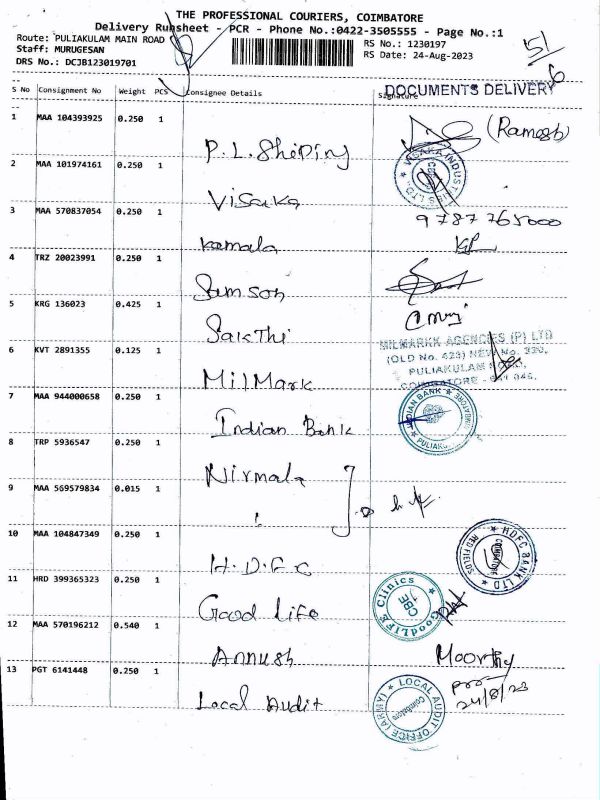 THE PROFESSIONAL COURIERS, COIMBATORE
Delivery Runsheet - PCR - Phone No.:0422-3505555 - Page No.:1
Route: PULIAKULAM MAIN ROAD
Staff: MURUGESAN
DRS No.: DCJB123019701
RS No.: 1230197
RS Date: 24-Aug-2023
51/6
DOCUMENTS DELIVERY
S No Consignment No Weight PCS Consignee Details Signature
1 MAA 104393925 0.250 1
P.L. Shiping (Ramesh)
2 MAA 101974161 0.250 1
Visaka VISAKA INDUSTRIES LTD.
3 MAA 570837054 0.250 1
Kamala 9787765000
4 TRZ 20023991 0.250 1
Samson
5 KRG 136023 0.425 1
Sakthi
6 KVT 2891355 0.125 1
MilMark
MILMARKK AGENCIES (P) LTD
(OLD No. 423) NEW No. 330,
PULIAKULAM ROAD,
COIMBATORE - 641 045.
7 MAA 944000658 0.250 1
Indian Bank INDIAN BANK
8 TRP 5936547 0.250 1
Nirmala
9 MAA 569579834 0.015 1
10 MAA 104847349 0.250 1
H.D.F.C HDFC BANK LTD RED FIELDS COIMBATORE
11 HRD 399365323 0.250 1
Good Life GoodLIFE Clinics CBE
12 MAA 570196212 0.540 1
Annush Moorthy
13 PGT 6141448 0.250 1
Local Audit LOCAL AUDIT OFFICE (ARMY) Coimbatore
24/8/23